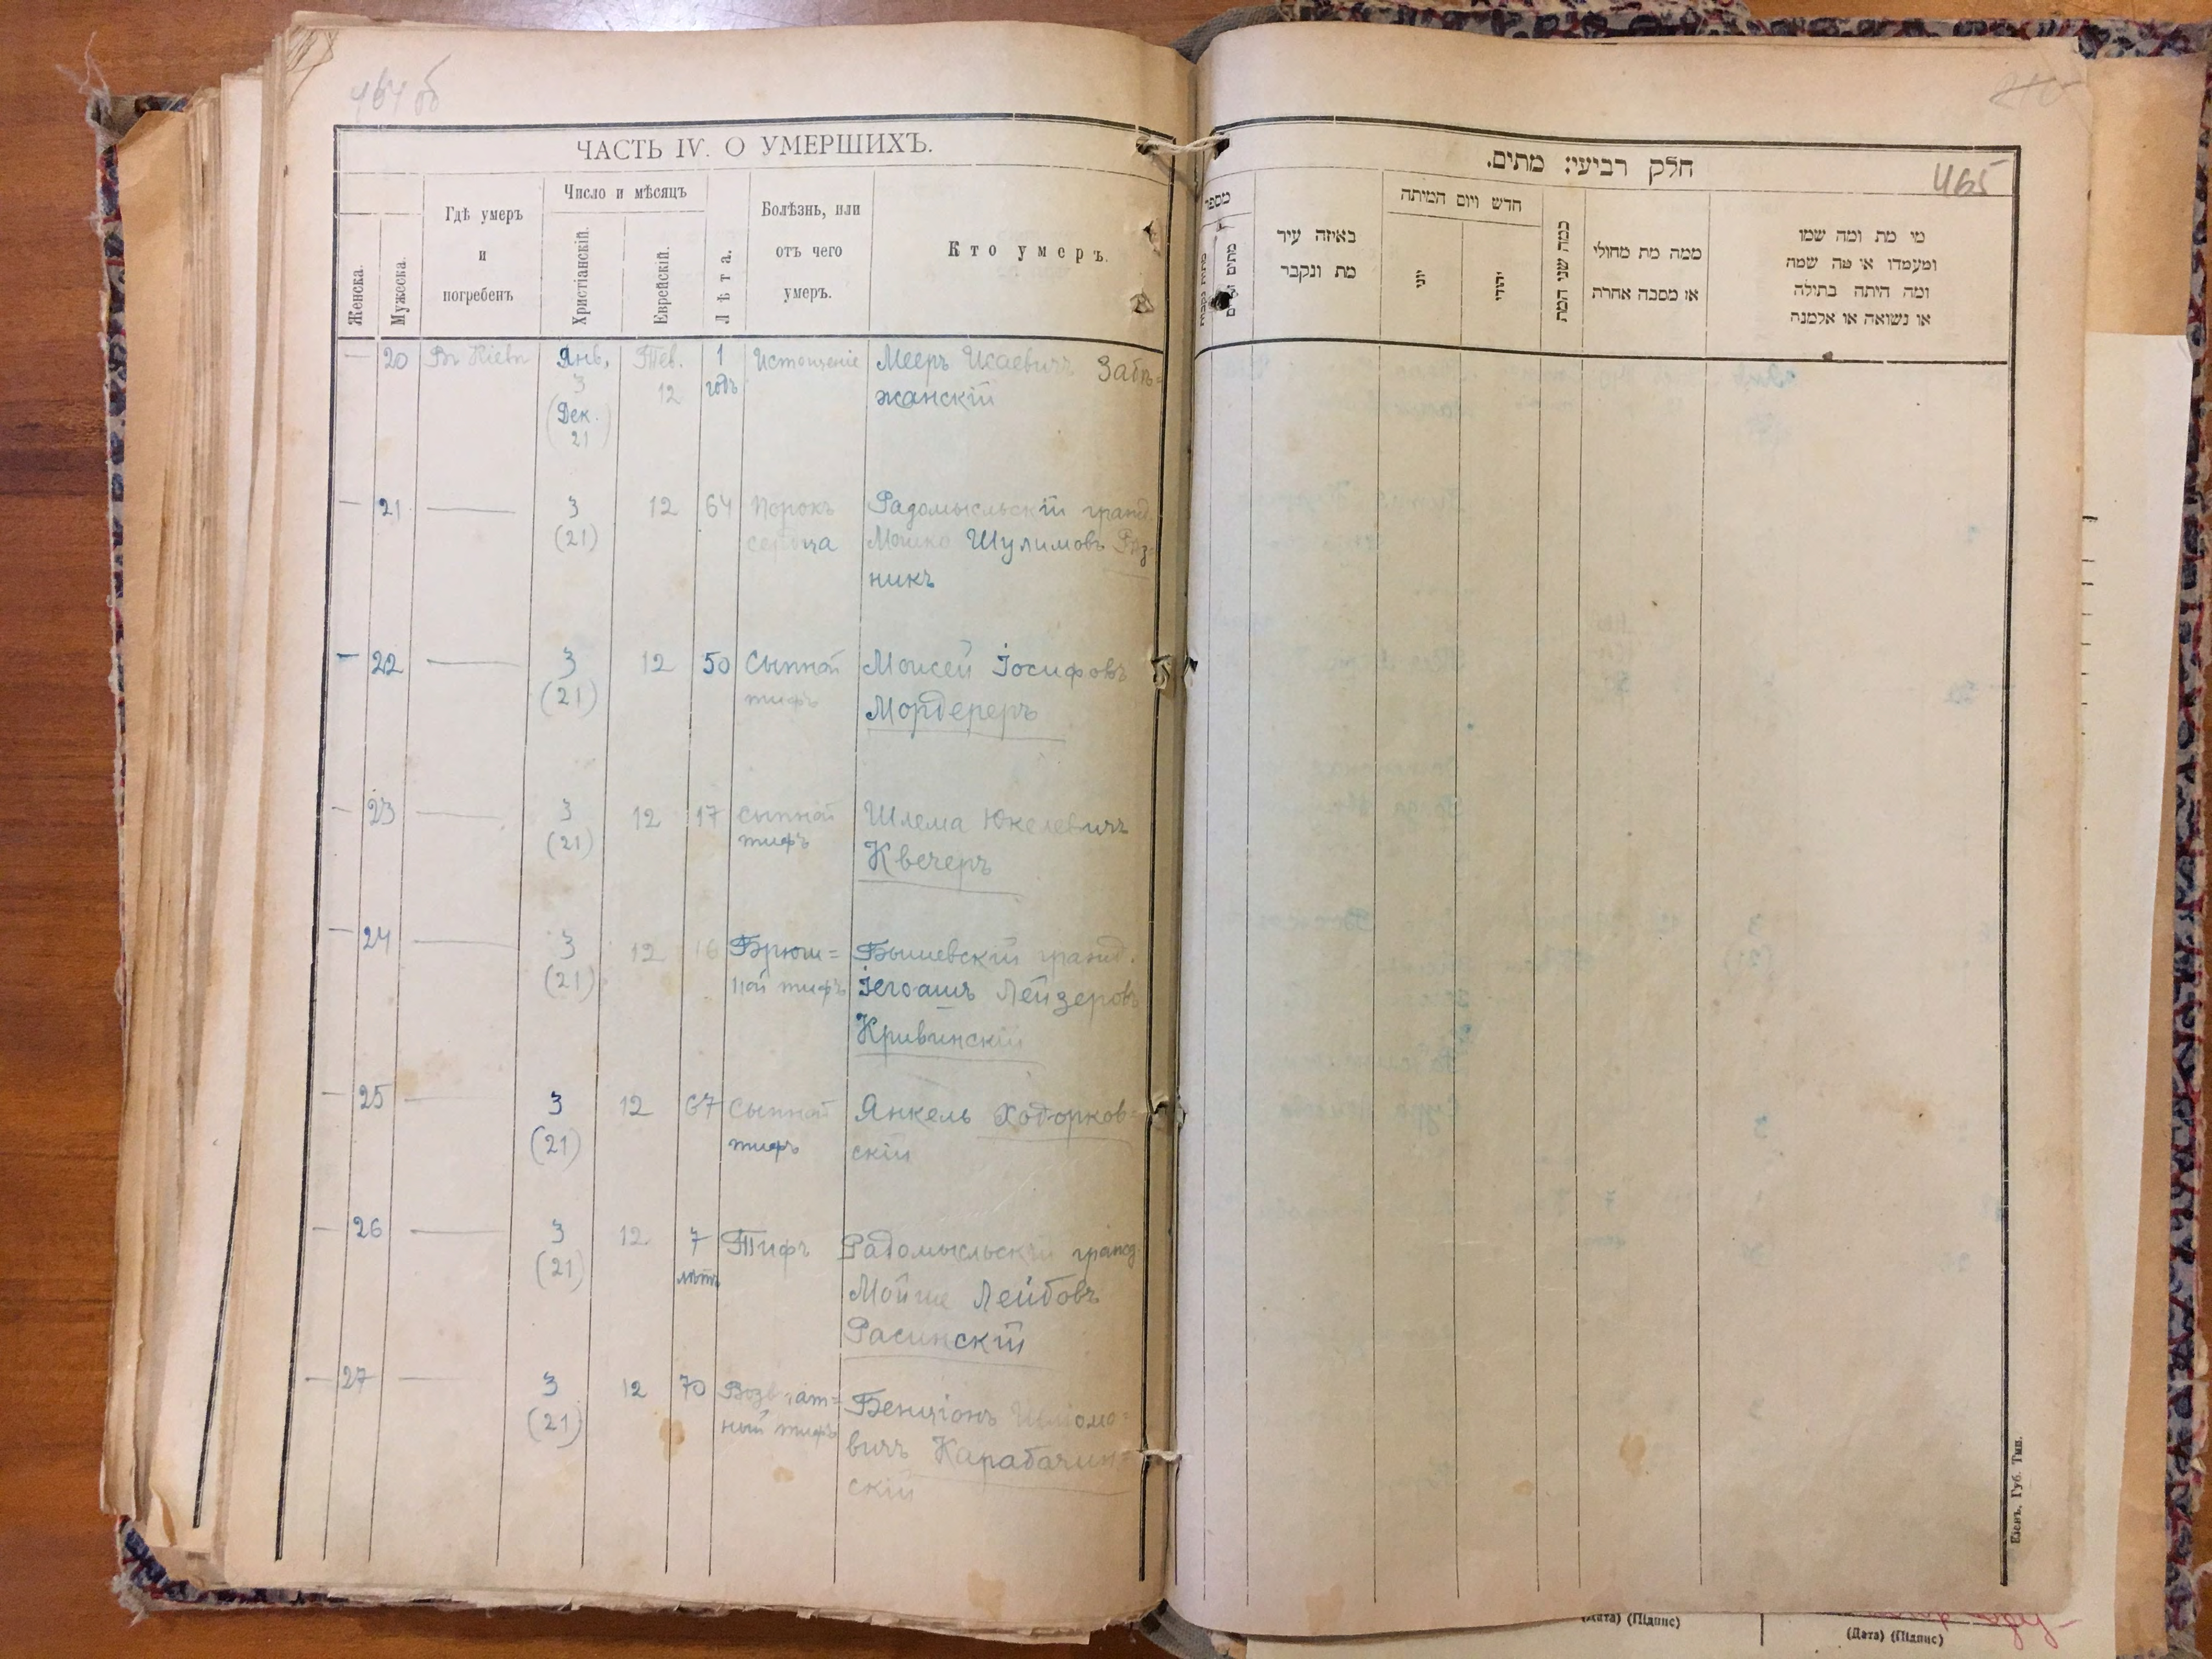 464 об
ЧАСТЬ IV. О УМЕРШИХЪ.
Женска.
Мужеска.
Гдѣ умеръ
и
погребенъ
Число и мѣсяцъ
Христіанскій.
Еврейскій.
Лѣта.
Болѣзнь, или
отъ чего
умеръ.
Кто умеръ.
— 20 Въ Кіевѣ Янв. Тев. 1 Истощеніе Мееръ Исаевичъ Забѣ=
3 12 годъ жанскій
(Дек.
21)
— 21 — 3 12 64 Порокъ Радомысльскій гражд.
(21) сердца Мошко Шулимовъ Рѣз=
никъ
— 22 — 3 12 50 Сыпной Моисей Іосифовъ
(21) тифъ Мордереръ
— 23 — 3 12 17 Сыпной Шлема Юкелевичъ
(21) тифъ Квечеръ
— 24 — 3 12 16 Брюш= Бышевскій гражд.
(21) ной тифъ Іегошиъ Лейзеровъ
Кривинскій
— 25 — 3 12 67 Сыпной Янкель Ходорков=
(21) тифъ скій
— 26 — 3 12 7 Тифъ Радомысльскій гражд.
(21) лѣтъ Мойше Лейбовъ
Расинскій
— 27 — 3 12 70 Возврат= Бенціонъ
(21) ный тифъ вичъ Карабачин=
скій
חלק רביעי: מתים.
465
מספר
מתים זכרים
מתות נקבות
באיזה עיר
מת ונקבר
חדש ויום המיתה
יוני
יהודי
כמה שני המת
ממה מת מחולי
או מסבה אחרת
מי מת ומה שמו
ומעמדו או מה שמה
ומה היתה בתולה
או נשואה או אלמנה
Кіевъ, Губ. Тип.
(Дата) (Підпис)
(Дата) (Підпис)